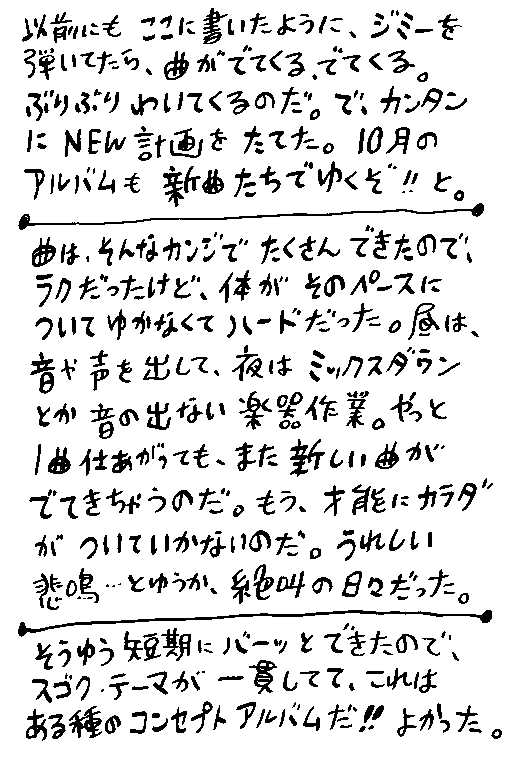 以前にも ここに書いたように、ジミーを
弾いてたら、曲がでてくる、でてくる。
ぶりぶりわいてくるのだ。で、カンタン
に NEW 計画を たてた。10月の
アルバムも 新曲たちでゆくぞ!!と。
曲は、そんなカンジで たくさん できたので、
ラクだったけど、体が そのペースに
ついて ゆかなくて ハードだった。昼は、
音や声を出して、夜は ミックスダウン
とか 音の出ない 楽器作業。やっと
1曲仕あがっても、また 新しい曲が
でてきちゃうのだ。もう、才能にカラダ
が ついていかないのだ。うれしい
悲鳴…とゆうか、絶叫の日々だった。
そうゆう短期に バーッとできたので、
スゴク・テーマが 一貫してて、これは
ある種のコンセプト アルバムだ!! よかった。